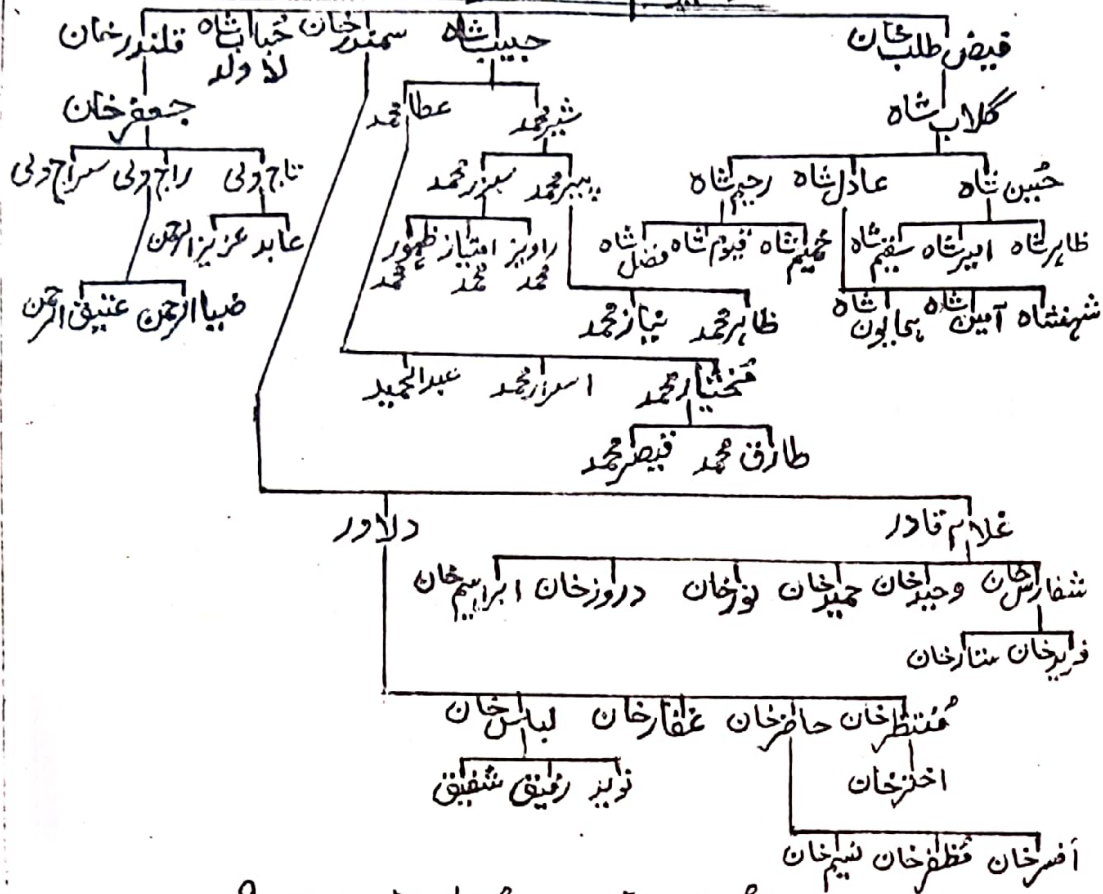 فیض طلب خان حبیب شاہ سمندر خان حباب شاہ قلندر خان
لا ولد
گلاب شاہ شیر محمد عطا محمد جعفر خان
حسین شاہ عادل شاہ رحیم شاہ پیر محمد سبز محمد تاج ولی راج ولی سراج ولی
ظاہر شاہ امیر شاہ سقیم شاہ قیوم شاہ فضل شاہ امتیاز محمد ظہور محمد عابد عزیز الرحمن
شہنشاہ آمین شاہ ہمایون شاہ ظاہر محمد نیاز محمد ضیا الرحمن عتیق الرحمن
مختیار محمد اسرار محمد عبدالحمید
طارق محمد قیصر محمد
غلام قادر دلاور
شفارس خان وحید خان حمید خان نور خان دروز خان ابراہیم خان
فرید خان ستار خان
مُنتظر خان حاضر خان غفار خان لباس خان
اختر خان نوید رفیق شفیق
افسر خان مُظفر خان نسیم خان